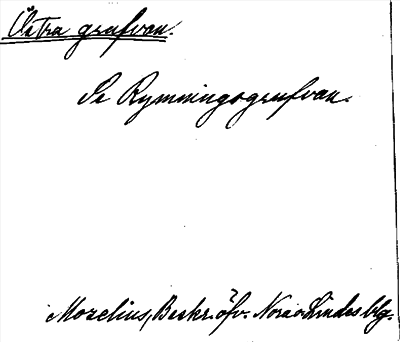 Östra grufvan.
Se Rymningsgrufvan.
Mozelius, Beskr. öfv. Nora o Lindes blg.